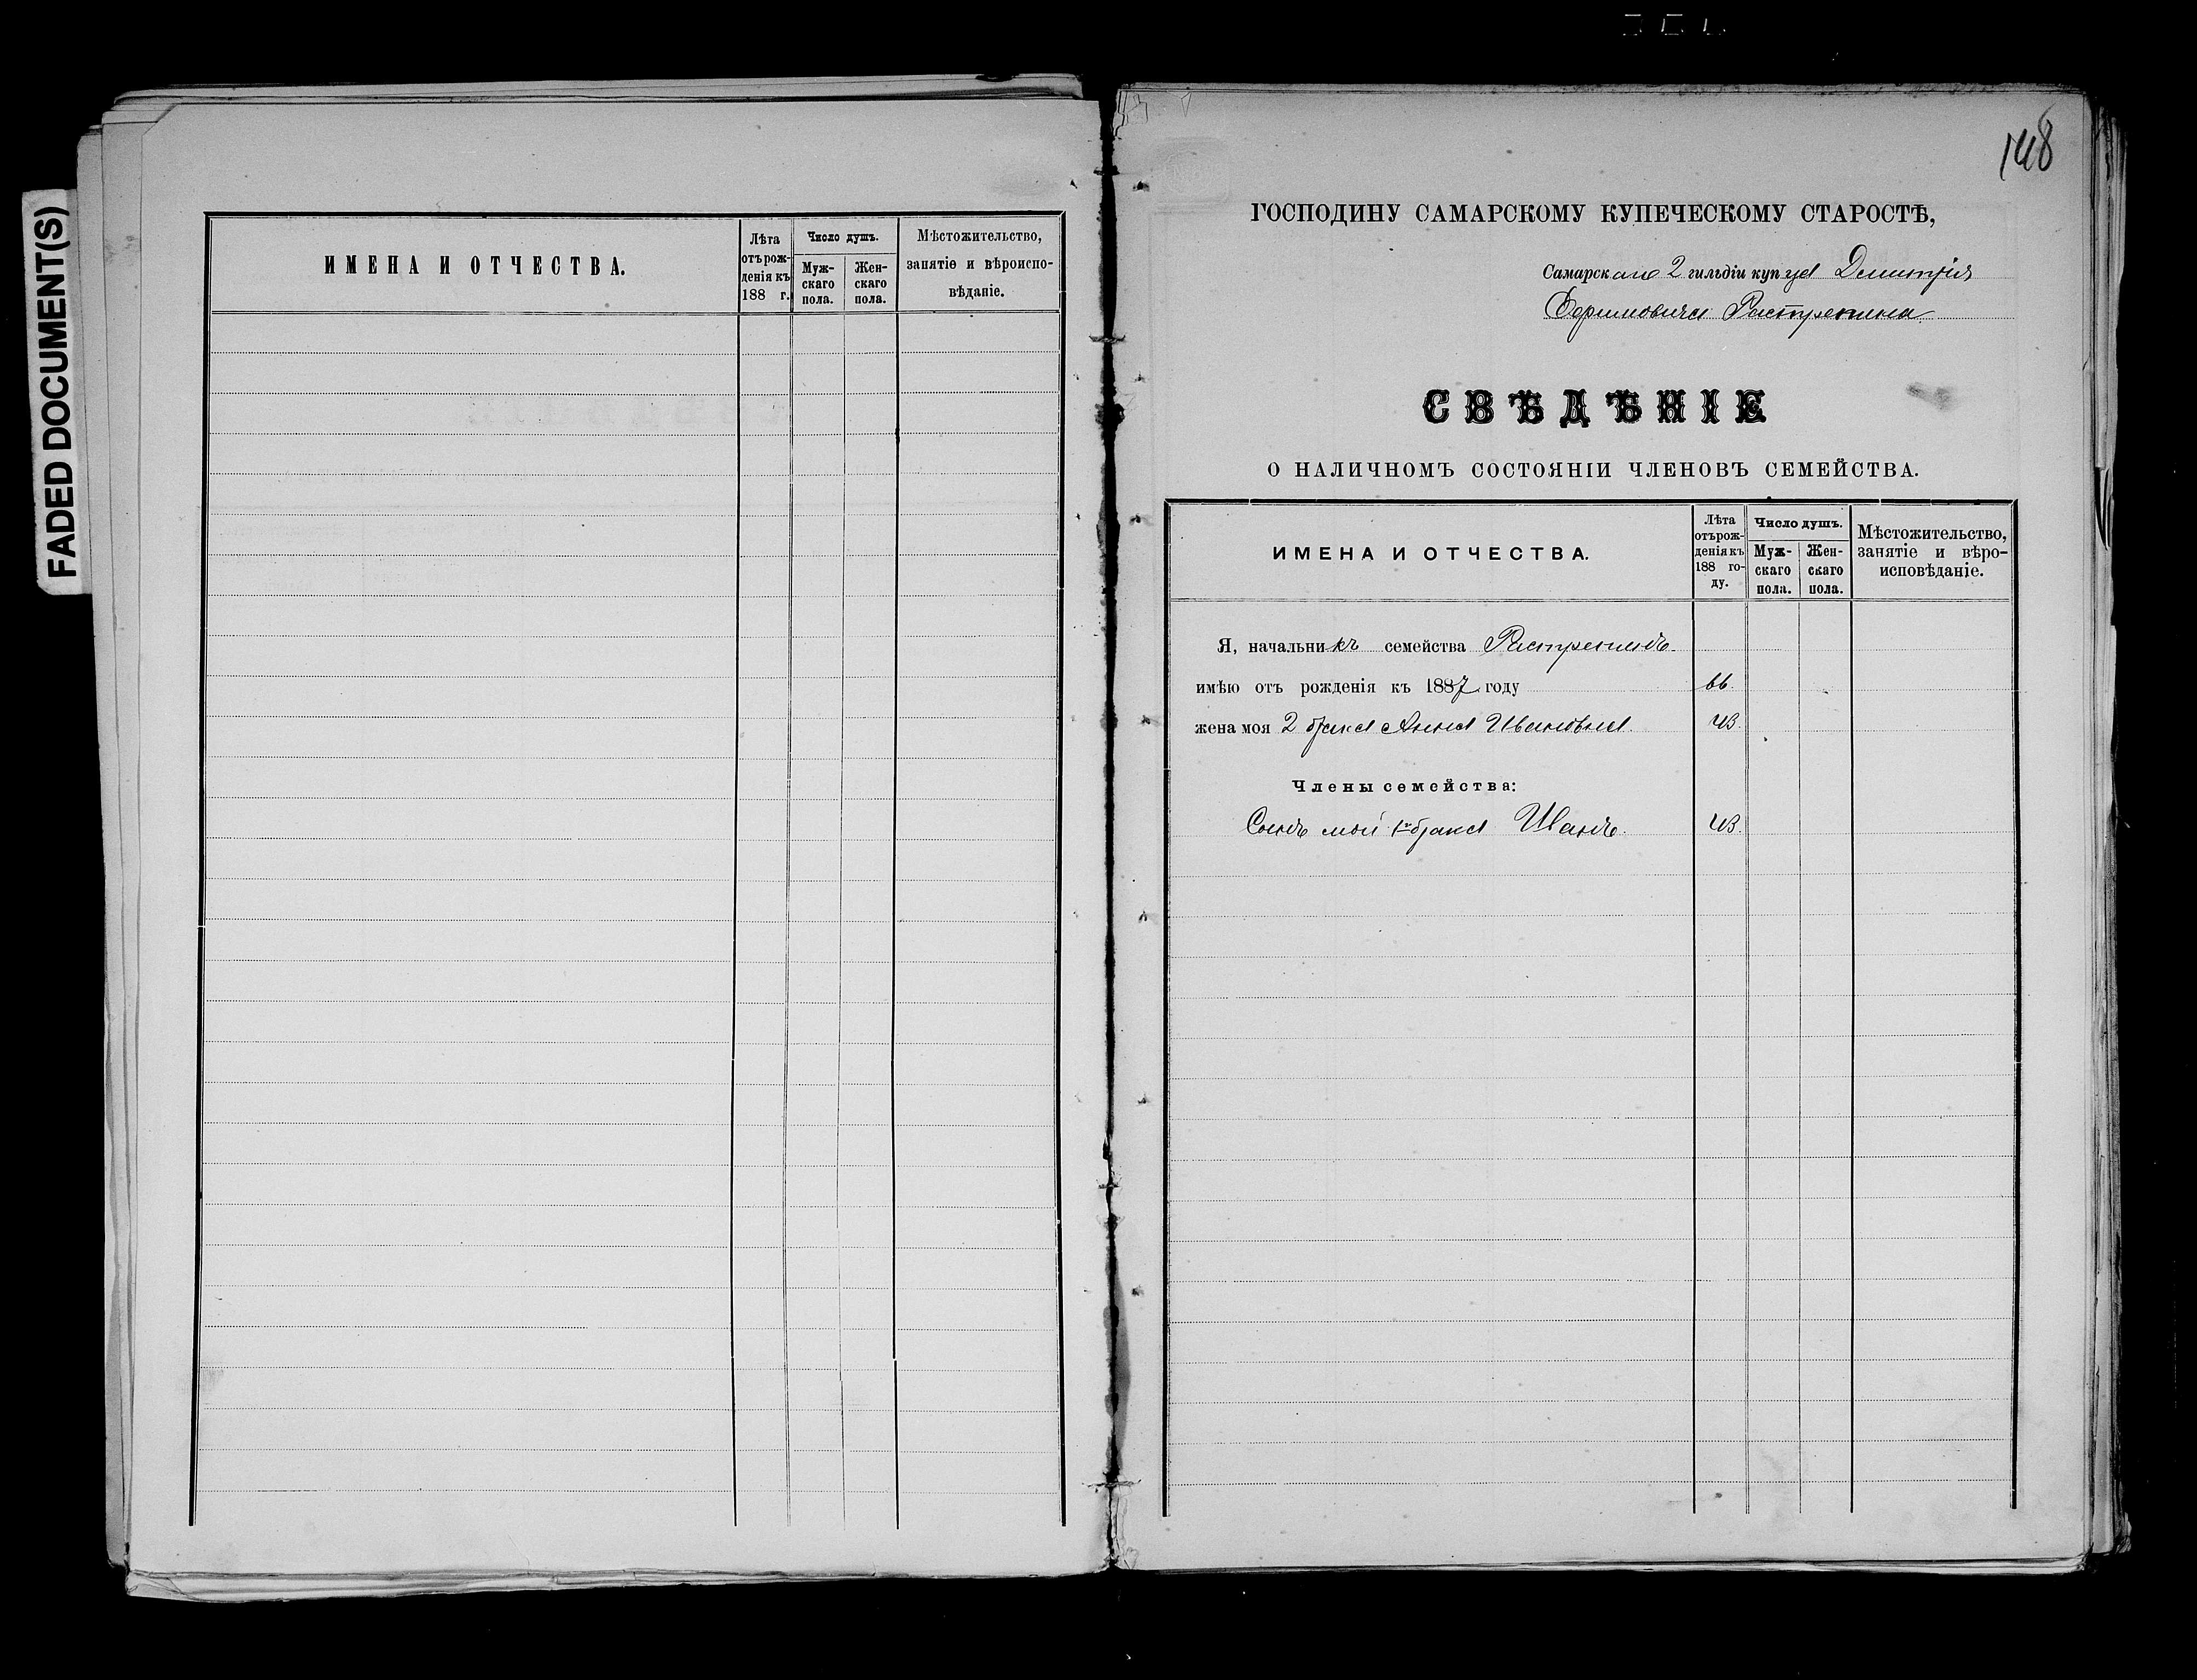 FADED DOCUMENT(S)
ИМЕНА И ОТЧЕСТВА.
Лѣта
отъ рож-
денія къ
188 г.
Число душъ.
Муж-
скаго
пола.
Жен-
скаго
пола.
Мѣстожительство,
занятіе и вѣроиспо-
вѣданіе.
148
ГОСПОДИНУ САМАРСКОМУ КУПЕЧЕСКОМУ СТАРОСТѢ,
Самарскаго 2 гильдіи купца Дмитрія
Ефимовича Растрепина
СВѢДѢНІЕ
О НАЛИЧНОМЪ СОСТОЯНІИ ЧЛЕНОВЪ СЕМЕЙСТВА.
ИМЕНА И ОТЧЕСТВА.
Лѣта
отъ рож-
денія къ
188 го-
ду.
Число душъ.
Муж-
скаго
пола.
Жен-
скаго
пола.
Мѣстожительство,
занятіе и вѣро-
исповѣданіе.
Я, начальникъ семейства Растрепинъ.
имѣю отъ рожденія къ 1887 году 66.
жена моя 2 брака Анна Ивановна. 43.
Члены семейства:
Сынъ мой 1го брака Иванъ. 43.